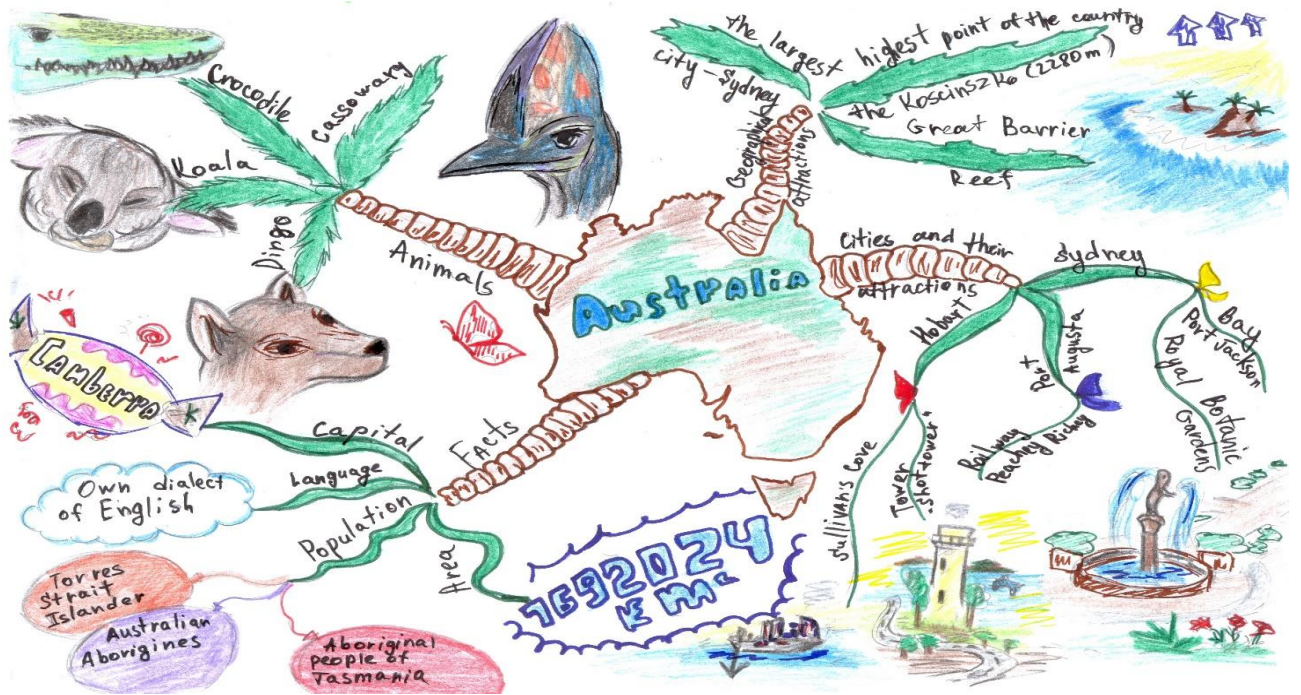 Australia
Animals
Crocodile
Cassowary
Koala
Dingo
Geographical
attractions
the largest
city-Sydney
highest point of the country
the Koscinszko (2280m)
Great Barrier
Reef
Cities and their
attractions
Sydney
Bay
Port Jackson
Royal Botanic
Gardens
Port
Augusta
Railway
Richy
Hobart
Sullivan's cove
Tower
"Shottower"
Facts
Capital
Camberra
Language
Own dialect
of English
Population
Torres
Strait
Islander
Australian
Aborigines
Aboriginal
people of
Tasmania
Area
7692024
km²